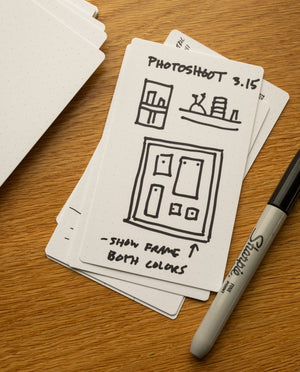 PHOTOSHOOT 3.15
-SHOW FRAME
BOTH COLORS
Sharpie